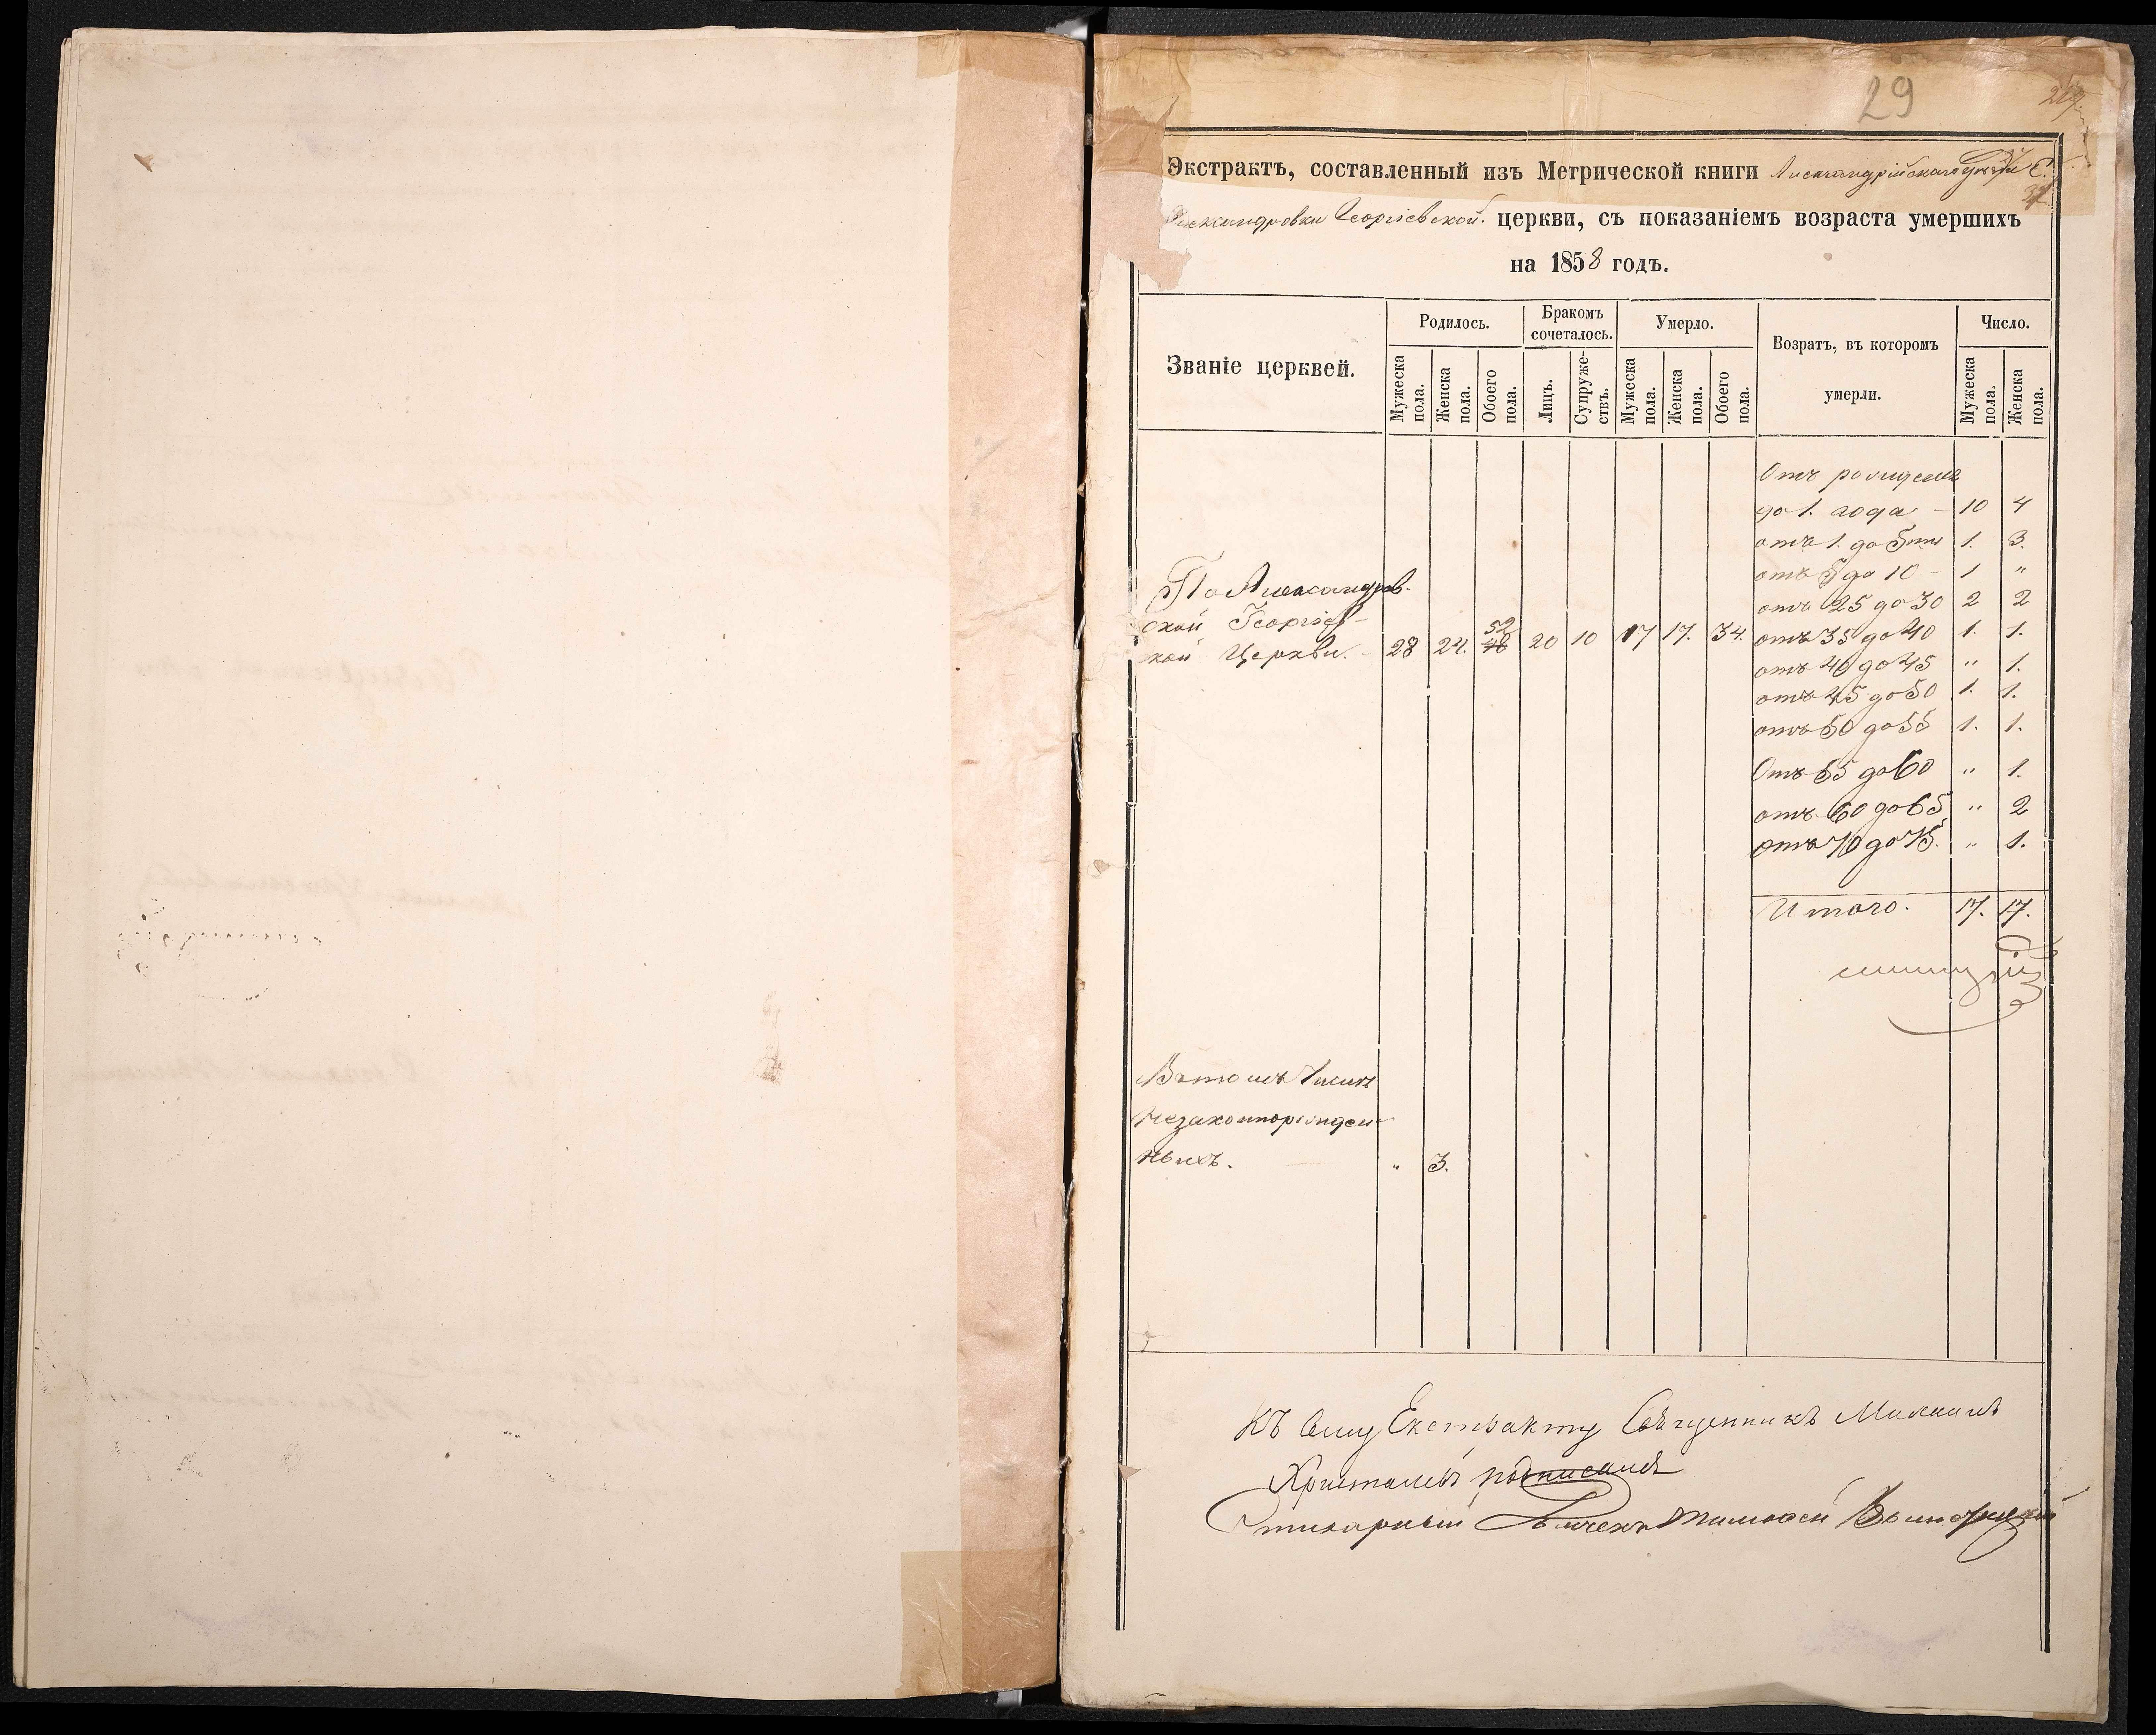 29
Экстрактъ, составленный изъ Метрической книги Александрійскаго уѣзда С.
Александровки Георгіевской. церкви, съ показаніемъ возраста умершихъ
на 1858 годъ.
Званіе церквей.
Родилось.
Бракомъ сочеталось.
Умерло.
Возратъ, въ которомъ умерли.
Число.
Мужеска пола.
Женска пола.
Обоего пола.
Лицъ.
Супруже-ствъ.
Мужеска пола.
Женска пола.
Обоего пола.
Мужеска пола.
Женска пола.
Отъ рожденія
до 1. года – 10 4
отъ 1. до 5ти 1. 3.
отъ 5 до 10 – 1 "
отъ 25 до 30 2 2
отъ 35 до 40 1. 1.
отъ 40 до 45 " 1.
отъ 45 до 50 1. 1.
отъ 50 до 55 1. 1.
Отъ 55 до 60 " 1.
отъ 60 до 65 " 2
отъ 70 до 75. " 1.
Итого. 17. 17.
По Александров-
ской Георгіев-
ской Церкви. – 28 24. 52 48 20 10 17 17. 34.
Въ томъ числѣ
незаконнорожден-
ныхъ. " 3.
Къ сему Екстракту Священникъ Михаилъ
подписался
Стихарный Дьячекъ Тимофей